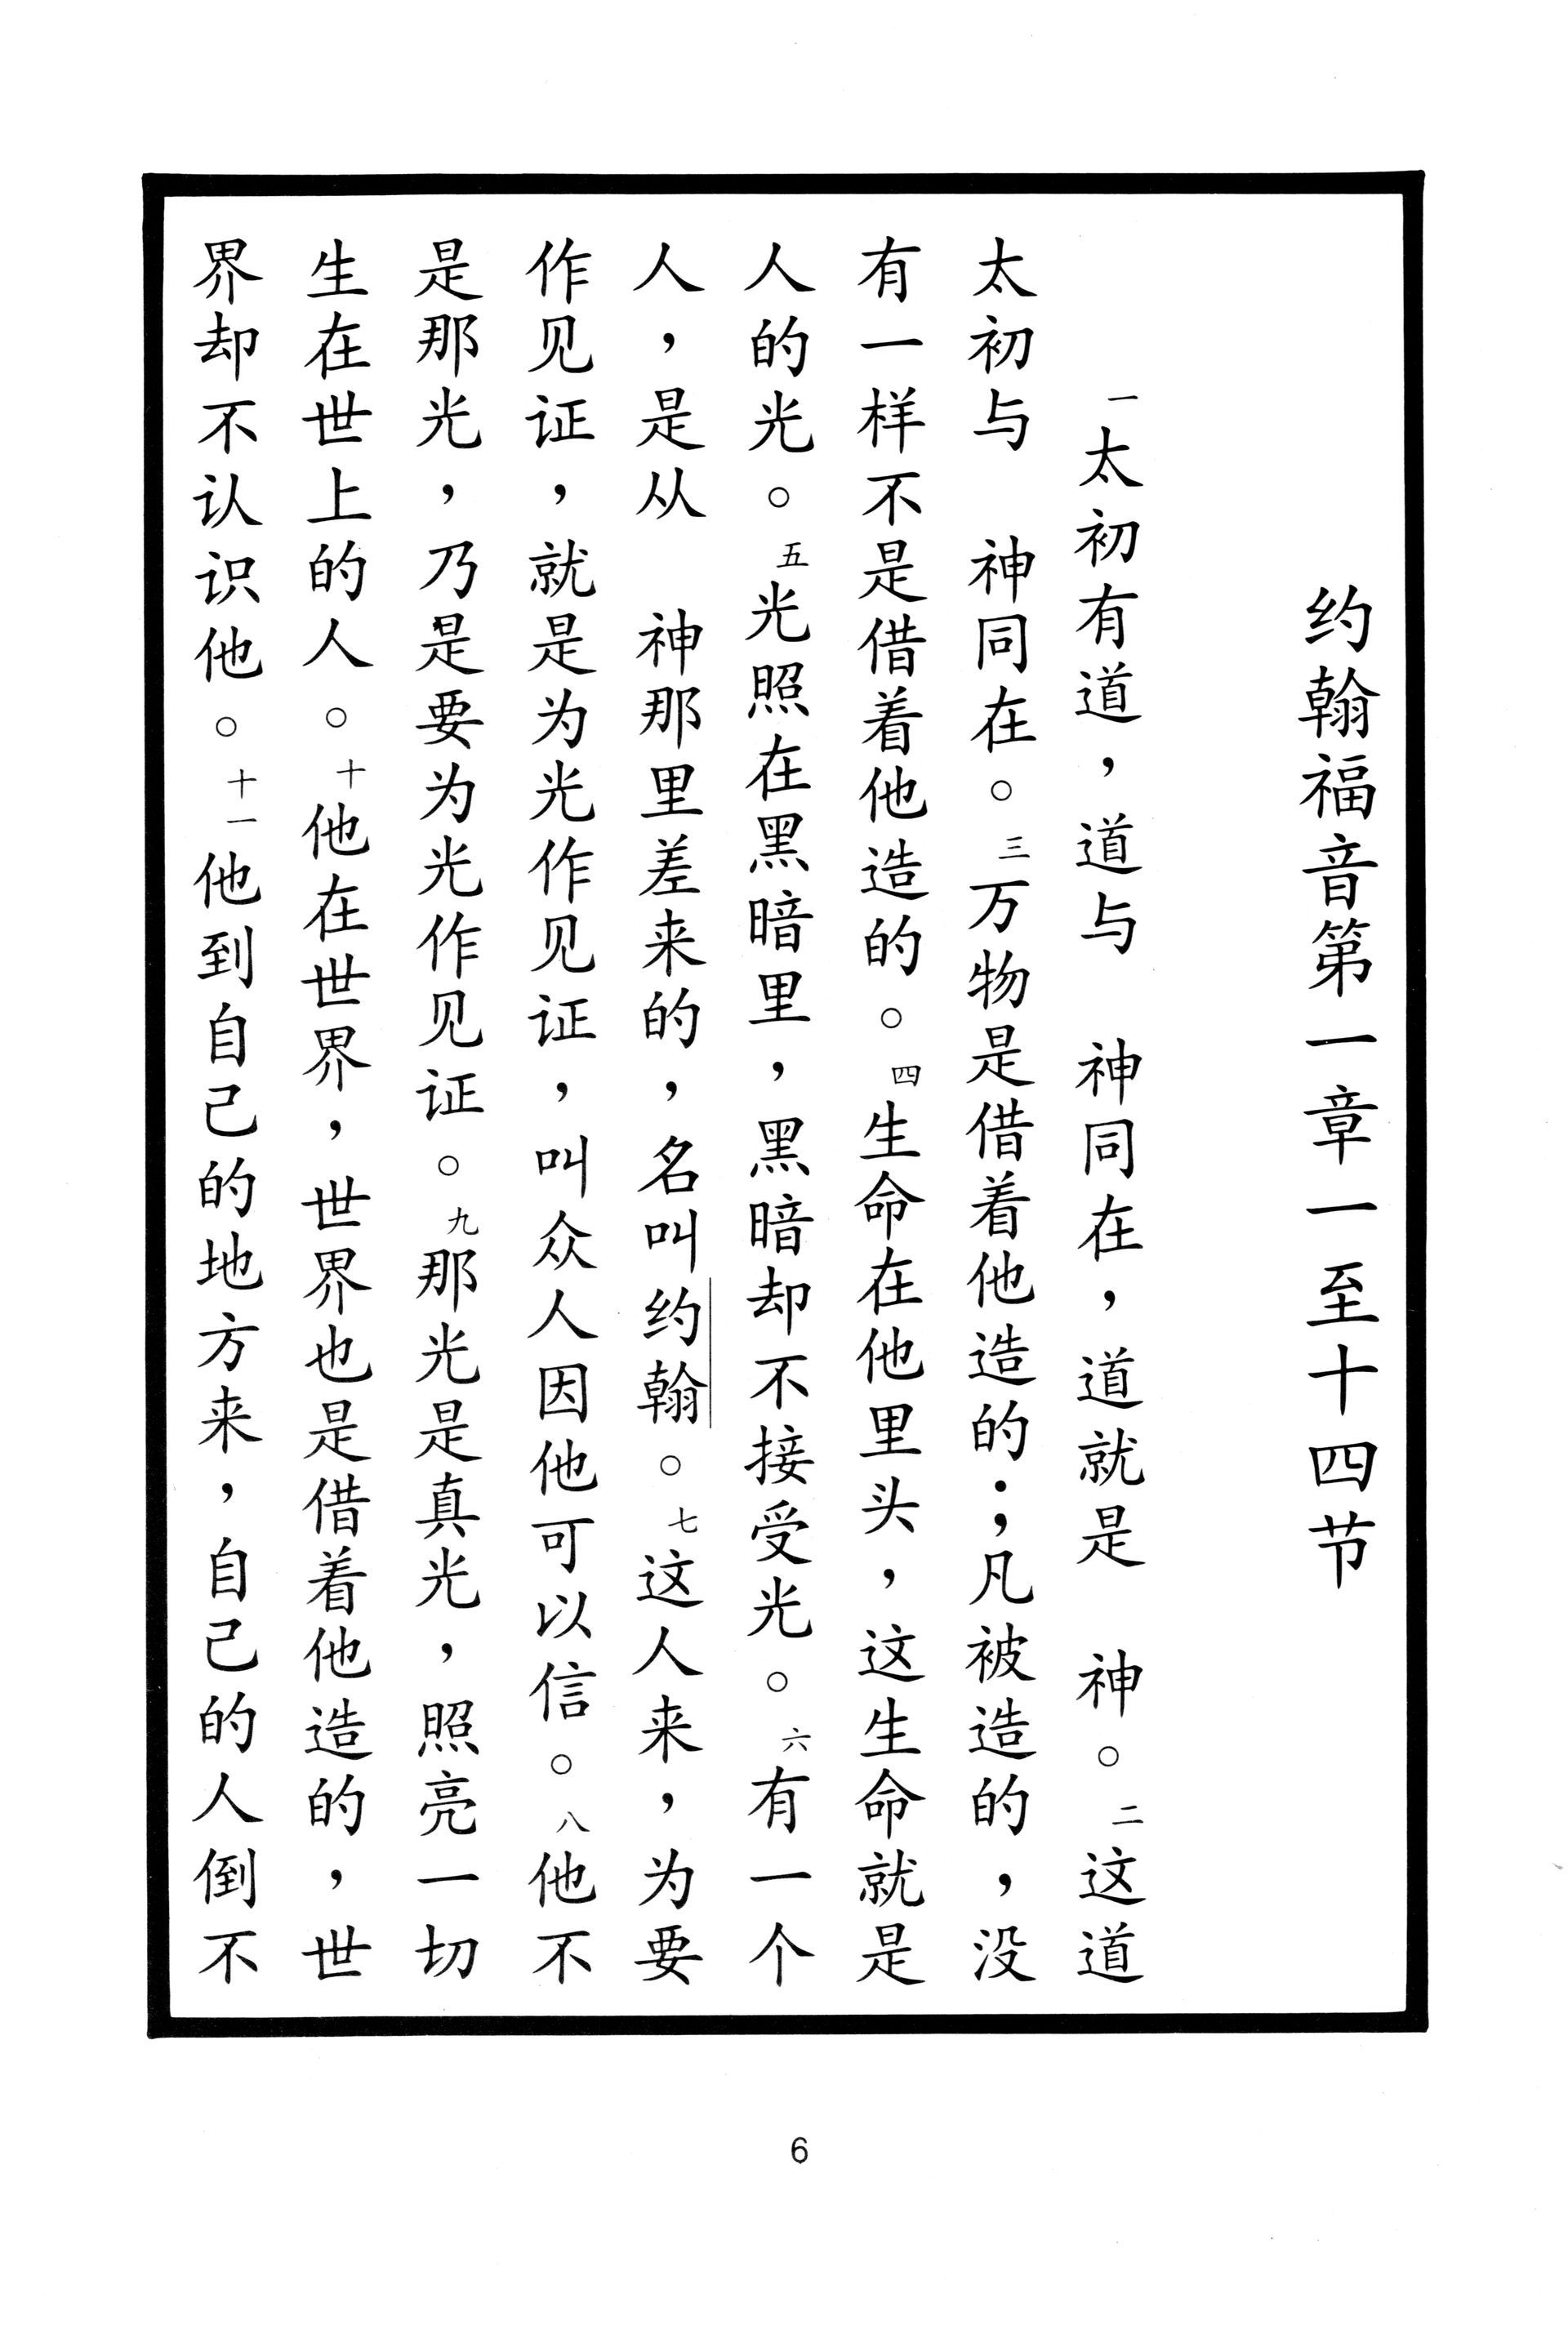 约翰福音第一章一至十四节
一太初有道，道与　神同在，道就是　神。二这道
太初与　神同在。三万物是借着他造的；凡被造的，没
有一样不是借着他造的。四生命在他里头，这生命就是
人的光。五光照在黑暗里，黑暗却不接受光。六有一个
人，是从　神那里差来的，名叫约翰。七这人来，为要
作见证，就是为光作见证，叫众人因他可以信。八他不
是那光，乃是要为光作见证。九那光是真光，照亮一切
生在世上的人。十他在世界，世界也是借着他造的，世
界却不认识他。十一他到自己的地方来，自己的人倒不
6